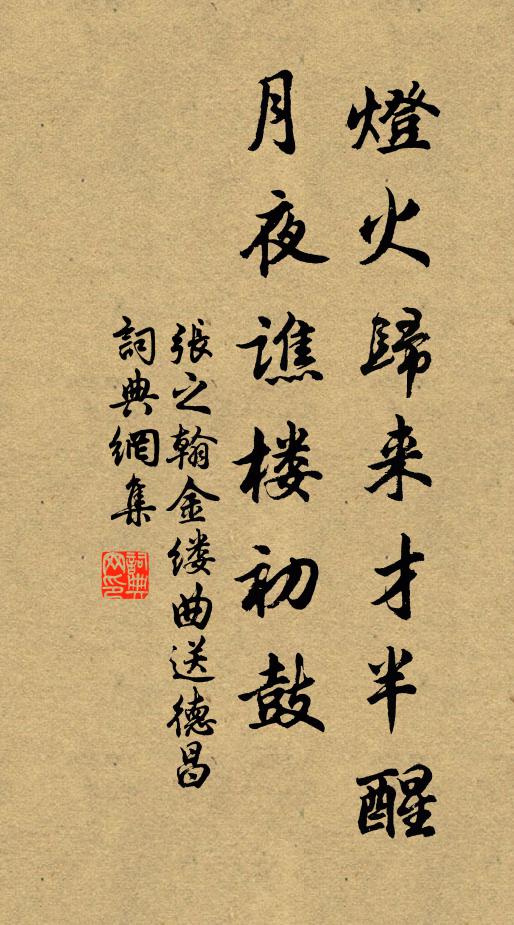 燈火歸来才半醒
月夜譙楼初鼓
張之翰金缕曲送德昌
詞典網集
詞典網印